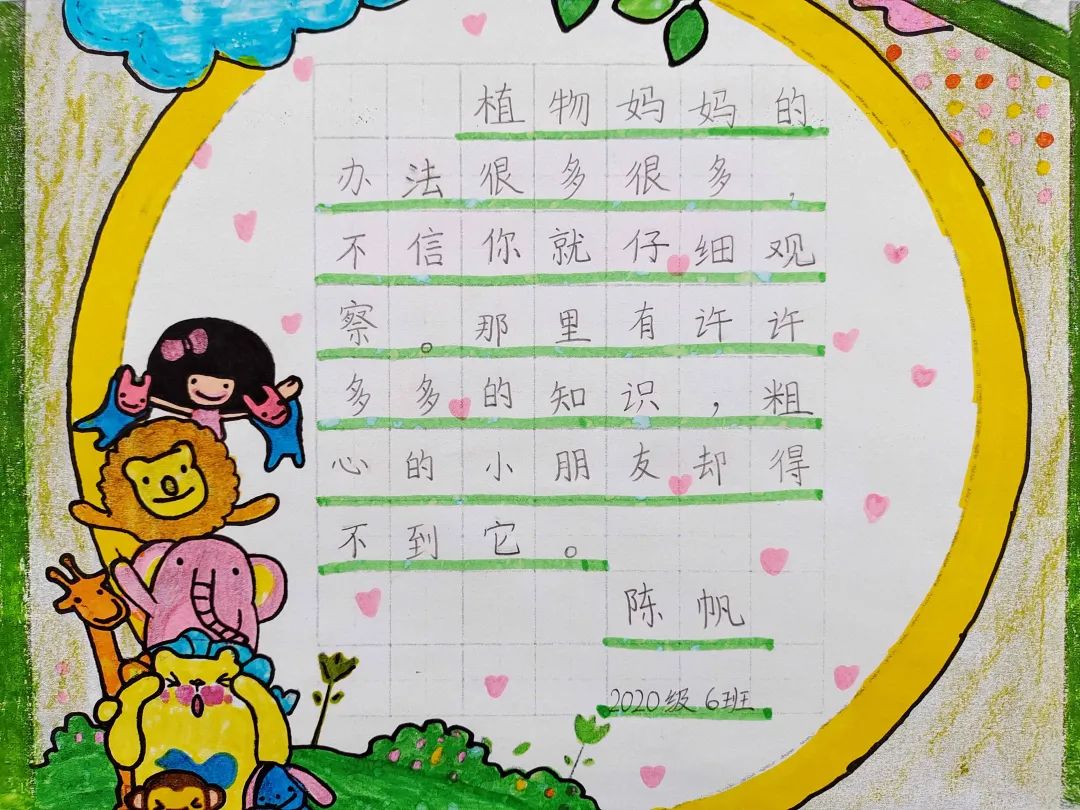 植物妈妈的
办法很多很多，
不信你就仔细观
察。那里有许许
多多的知识，粗
心的小朋友却得
不到它。
陈帆
2020级6班